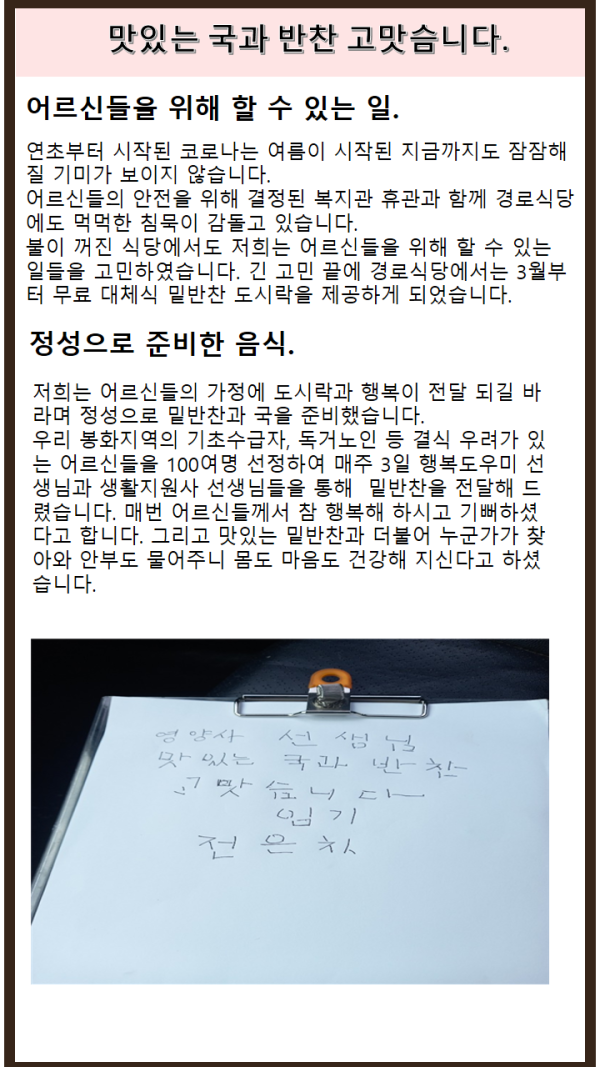 맛있는 국과 반찬 고맛슴니다.
어르신들을 위해 할 수 있는 일.
연초부터 시작된 코로나는 여름이 시작된 지금까지도 잠잠해
질 기미가 보이지 않습니다.
어르신들의 안전을 위해 결정된 복지관 휴관과 함께 경로식당
에도 먹먹한 침묵이 감돌고 있습니다.
불이 꺼진 식당에서도 저희는 어르신들을 위해 할 수 있는
일들을 고민하였습니다. 긴 고민 끝에 경로식당에서는 3월부
터 무료 대체식 밑반찬 도시락을 제공하게 되었습니다.
정성으로 준비한 음식.
저희는 어르신들의 가정에 도시락과 행복이 전달 되길 바
라며 정성으로 밑반찬과 국을 준비했습니다.
우리 봉화지역의 기초수급자, 독거노인 등 결식 우려가 있
는 어르신들을 100여명 선정하여 매주 3일 행복도우미 선
생님과 생활지원사 선생님들을 통해 밑반찬을 전달해 드
렸습니다. 매번 어르신들께서 참 행복해 하시고 기뻐하셨
다고 합니다. 그리고 맛있는 밑반찬과 더불어 누군가가 찾
아와 안부도 물어주니 몸도 마음도 건강해 지신다고 하셨
습니다.
영양사 선생님
맛있는 국과 반찬
고맛슴니다
임기
전은차